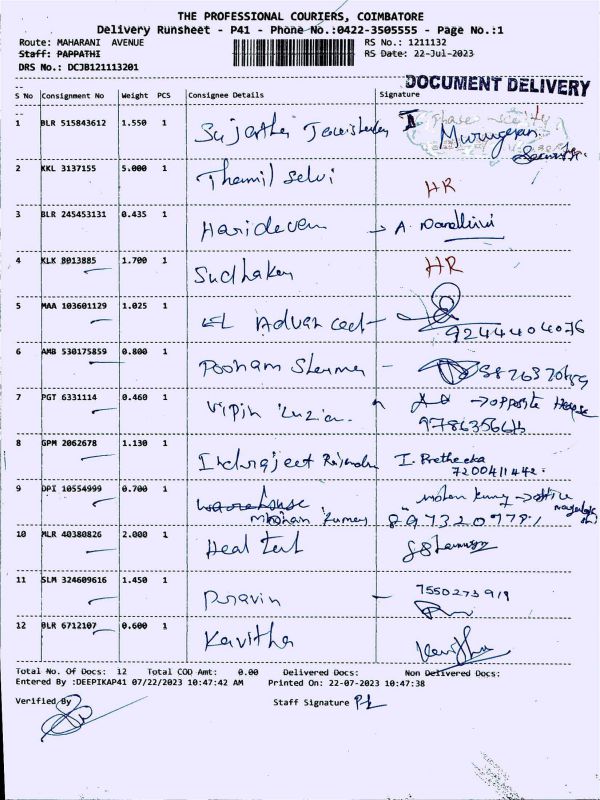 THE PROFESSIONAL COURIERS, COIMBATORE
Delivery Runsheet - P41 - Phone No.:0422-3505555 - Page No.:1
Route: MAHARANI AVENUE RS No.: 1211132
Staff: PAPPATHI RS Date: 22-Jul-2023
DRS No.: DCJB121113201
DOCUMENT DELIVERY
S No Consignment No Weight PCS Consignee Details Signature
1 BLR 515843612 1.550 1 Murugesan
Security
2 KKL 3137155 5.000 1 Thamil Selvi HR
3 BLR 245453131 0.435 1 Haridevan A.
4 KLK B013885 1.700 1 Sudhakar HR
5 MAA 103601129 1.025 1 9244404076
6 AMB 530175859 0.800 1 Poonam Sharma
7 PGT 6331114 0.460 1 Vipin → opposite House
8 GPM 2062678 1.130 1 Indrajeet I. Pretheeka
7200411442.
9 DPI 10554999 0.700 1 warehouse → office
Mohan Kumar
10 MLR 40380826 2.000 1 Heal
11 SLM 324609616 1.450 1 Pravin 7550273919
12 BLR 6712107 0.600 1 Kavitha
Total No. Of Docs: 12 Total COD Amt: 0.00 Delivered Docs: Non Delivered Docs:
Entered By :DEEPIKAP41 07/22/2023 10:47:42 AM Printed On: 22-07-2023 10:47:38
Verified By Staff Signature